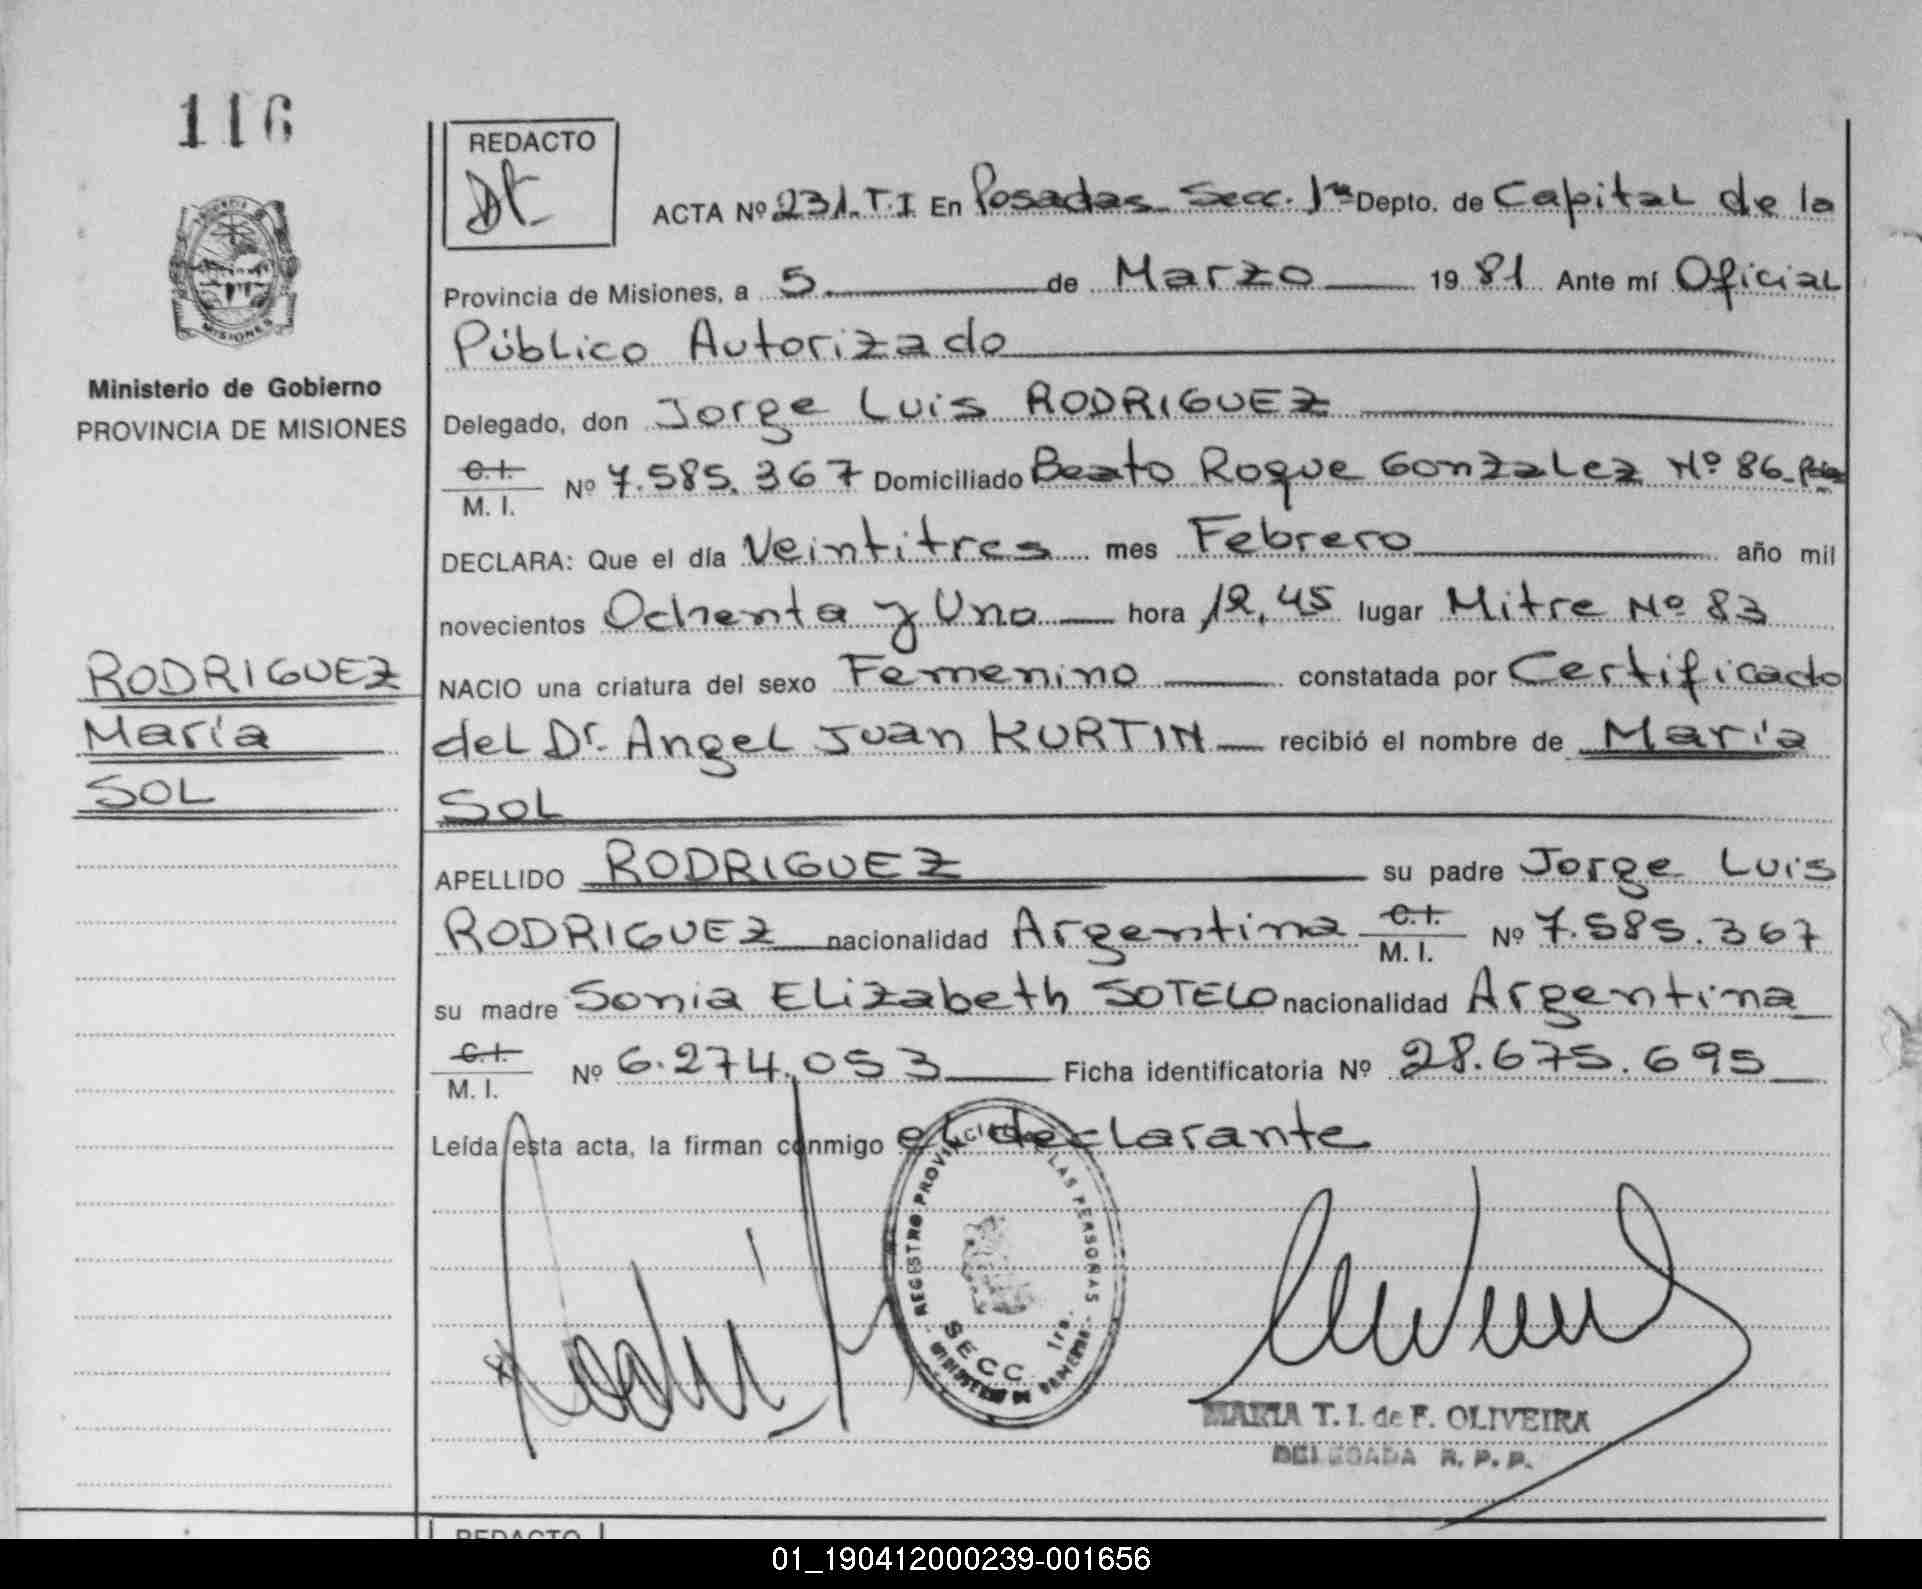 116
REDACTO
ACTA Nº 231.T.I En Posadas Secc. 1ra Depto. de Capital de la
Provincia de Misiones, a 5 de Marzo 1981 Ante mí Oficial
Público Autorizado
MISIONES
Ministerio de Gobierno
PROVINCIA DE MISIONES
Delegado, don Jorge Luis RODRIGUEZ
C.I.
M. I. Nº 7.585.367 Domiciliado Beato Roque Gonzalez Nº 86
DECLARA: Que el día Veintitres mes Febrero año mil
novecientos Ochenta y Uno hora 12,45 lugar Mitre Nº 83
RODRIGUEZ
María
SOL
NACIO una criatura del sexo Femenino constatada por Certificado
del Dr. Angel Juan KURTIN recibió el nombre de María
SoL
APELLIDO RODRIGUEZ su padre Jorge Luis
RODRIGUEZ nacionalidad Argentina C.I. M. I. Nº 7.585.367
su madre Sonia Elizabeth SOTELO nacionalidad Argentina
C.I.
M. I. Nº 6.274.053 Ficha identificatoria Nº 28.675.695
Leída esta acta, la firman conmigo el declarante
REGISTRO PROVINCIAL LAS PERSONAS
SECC. 1ra.
MARIA T. I. de F. OLIVEIRA
DELEGADA R. P. P.
REDACTO
01_190412000239-001656